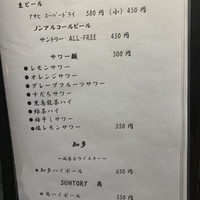 生ビール
アサヒ スーパードライ 580円 (小) 450円
ノンアルコールビール
サントリー ALL-FREE 450円
サワー類 500円
●レモンサワー
●オレンジサワー
●グレープフルーツサワー
●すだちサワー
●黒烏龍茶ハイ
●緑茶ハイ
●梅干しサワー
●塩レモンサワー 550円
知多
●知多ハイボール 650円
SUNTORY 角
●角ハイボール 550円